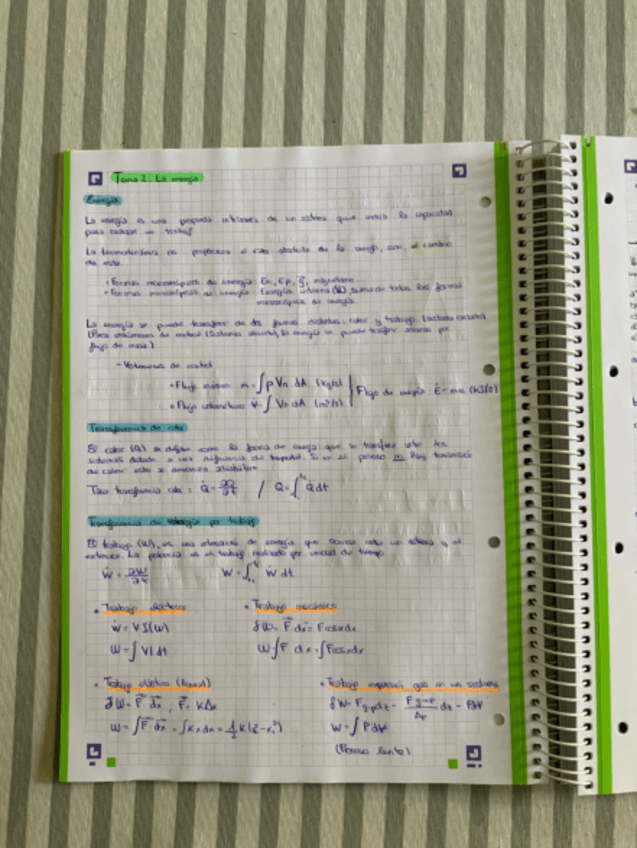 Tema 2. La energía
Energía
La energía es una propiedad de un sistema que indica la capacidad
para realizar un trabajo
La termodinámica no el de la energía, el cambio
de esta.
• Formas macroscópicas de energía: Ec, Ep,
• Formas microscópicas de energía: Energía interna (U), suma de todas las formas
microscópicas de energía
La energía se puede transferir de dos formas distintas, calor y trabajo. (sistema cerrado)
(Para volúmenes de control (Sistema abierto), la energía se puede por
flujo de masa)
- Volúmenes de control
• Flujo másico ṁ = ∫ρ Vn dA (kg/s) | Flujo de energía: Ė = ṁe (kJ/s)
• Flujo volumétrico = ∫ Vn dA (m³/s)
Transferencia de calor
El calor (Q) se define como la forma de energía que se transfiere entre dos
sistemas debido a una diferencia de temperatura. Si en el proceso no hay transferencia
de calor este se denomina adiabático
Tasa transferencia calor: Q̇ = / Q = ∫ Q̇ dt
Transferencia de energía por trabajo
El trabajo (W), es una de energía que ocurre entre un sistema y el
exterior. La potencia es el trabajo realizado por unidad de tiempo
Ẇ = ∂W/∂t W = ∫ Ẇ dt
• Trabajo eléctrico • Trabajo mecánico
Ẇ = VI (W) δW = F⃗ dx⃗ = F cosα dx
W = ∫ VI dt W ∫F dx = ∫F cosα dx
• Trabajo elástico (lineal) • Trabajo expansión gas en un sistema
∂W = F⃗ dx⃗ ; F⃗ = KΔx δW = F dz = dz = PdV
W = ∫F⃗ dx⃗ = ∫Kx dx = ½ K (x₂² - x₁²) W = ∫ PdV
(Proceso lento)